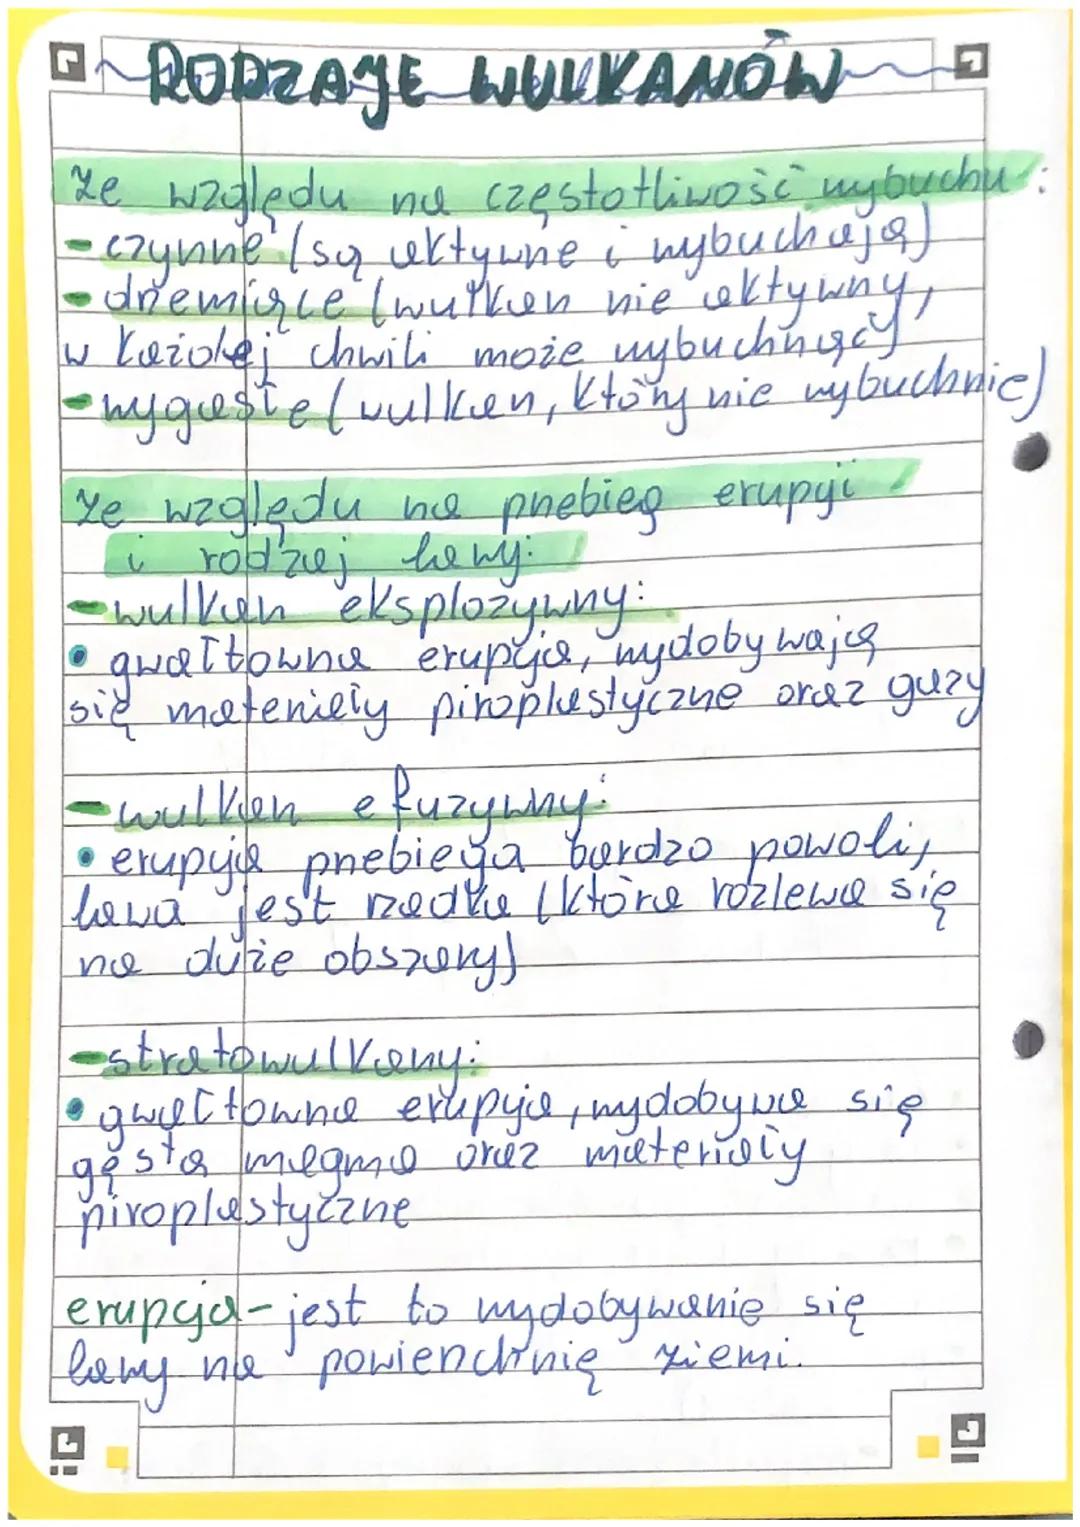 RODZAJE WULKANÓW
Ze względu na częstotliwość wybuchu:
- czynne (są aktywne i wybuchają)
- drzemiące (wulkan nie aktywny,
w każdej chwili może wybuchnąć)
- wygasłe (wulkan, który nie wybuchnie)
Ze względu na przebieg erupcji
i rodzaj lawy:
- wulkan eksplozywny:
• gwałtowna erupcja, wydobywają
się materiały piroplastyczne oraz gazy
- wulkan efuzywny:
• erupcja przebiega bardzo powoli,
lawa jest rzadka (która rozlewa się
na duże obszary)
- stratowulkany:
• gwałtowna erupcja, wydobywa się
gęsta magma oraz materiały
piroplastyczne
erupcja - jest to wydobywanie się
lawy na powierzchnię ziemi.